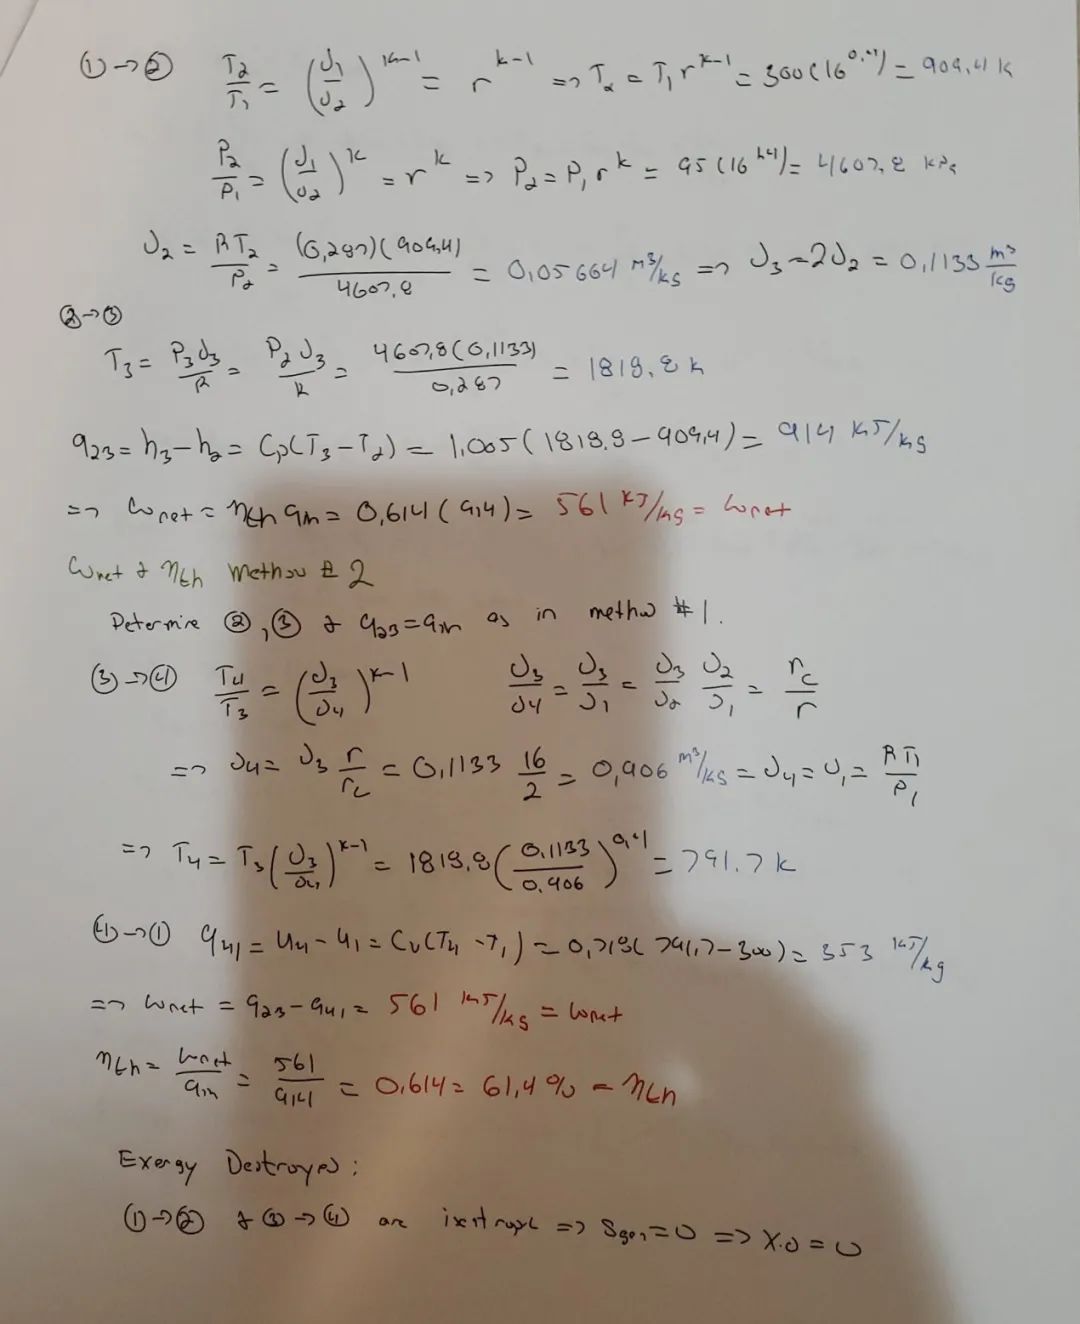 ①→② T2/T1 = (υ1/υ2)^k-1 = r^k-1 => T2 = T1 r^k-1 = 300(16^0.4) = 909,4 K
P2/P1 = (υ1/υ2)^k = r^k => P2 = P1 r^k = 95(16^1.4) = 4607,8 kPa
υ2 = RT2/P2 = (0,287)(909,4)/4607,8 = 0,05664 m³/kg => υ3 = 2υ2 = 0,1133 m³/kg
②→③
T3 = P3υ3/R = P2υ3/R = 4607,8(0,1133)/0,287 = 1818,8 K
q23 = h3 - h2 = Cp(T3 - T2) = 1,005(1818,8 - 909,4) = 914 kJ/kg
=> ωnet = ηth qin = 0,614(914) = 561 kJ/kg = ωnet
ωnet & ηth Method # 2
Determine ②,③ & q23 = qin as in method #1.
③→④ T4/T3 = (υ3/υ4)^k-1 υ3/υ4 = υ3/υ1 = υ3/υ2 υ2/υ1 = rc/r
=> υ4 = υ3 r/rc = 0,1133 16/2 = 0,906 m³/kg = υ4 = υ1 = RT1/P1
=> T4 = T3(υ3/υ4)^k-1 = 1818,8(0.1133/0.906)^0,4 = 791.7 K
④→① q41 = u4 - u1 = Cv(T4 - T1) = 0,718(791,7 - 300) = 353 kJ/kg
=> ωnet = q23 - q41 = 561 kJ/kg = ωnet
ηth = ωnet/qin = 561/914 = 0,614 = 61,4% = ηth
Exergy Destroyed:
①→② & ③→④ are isentropic => Sgen = 0 => X.D = 0